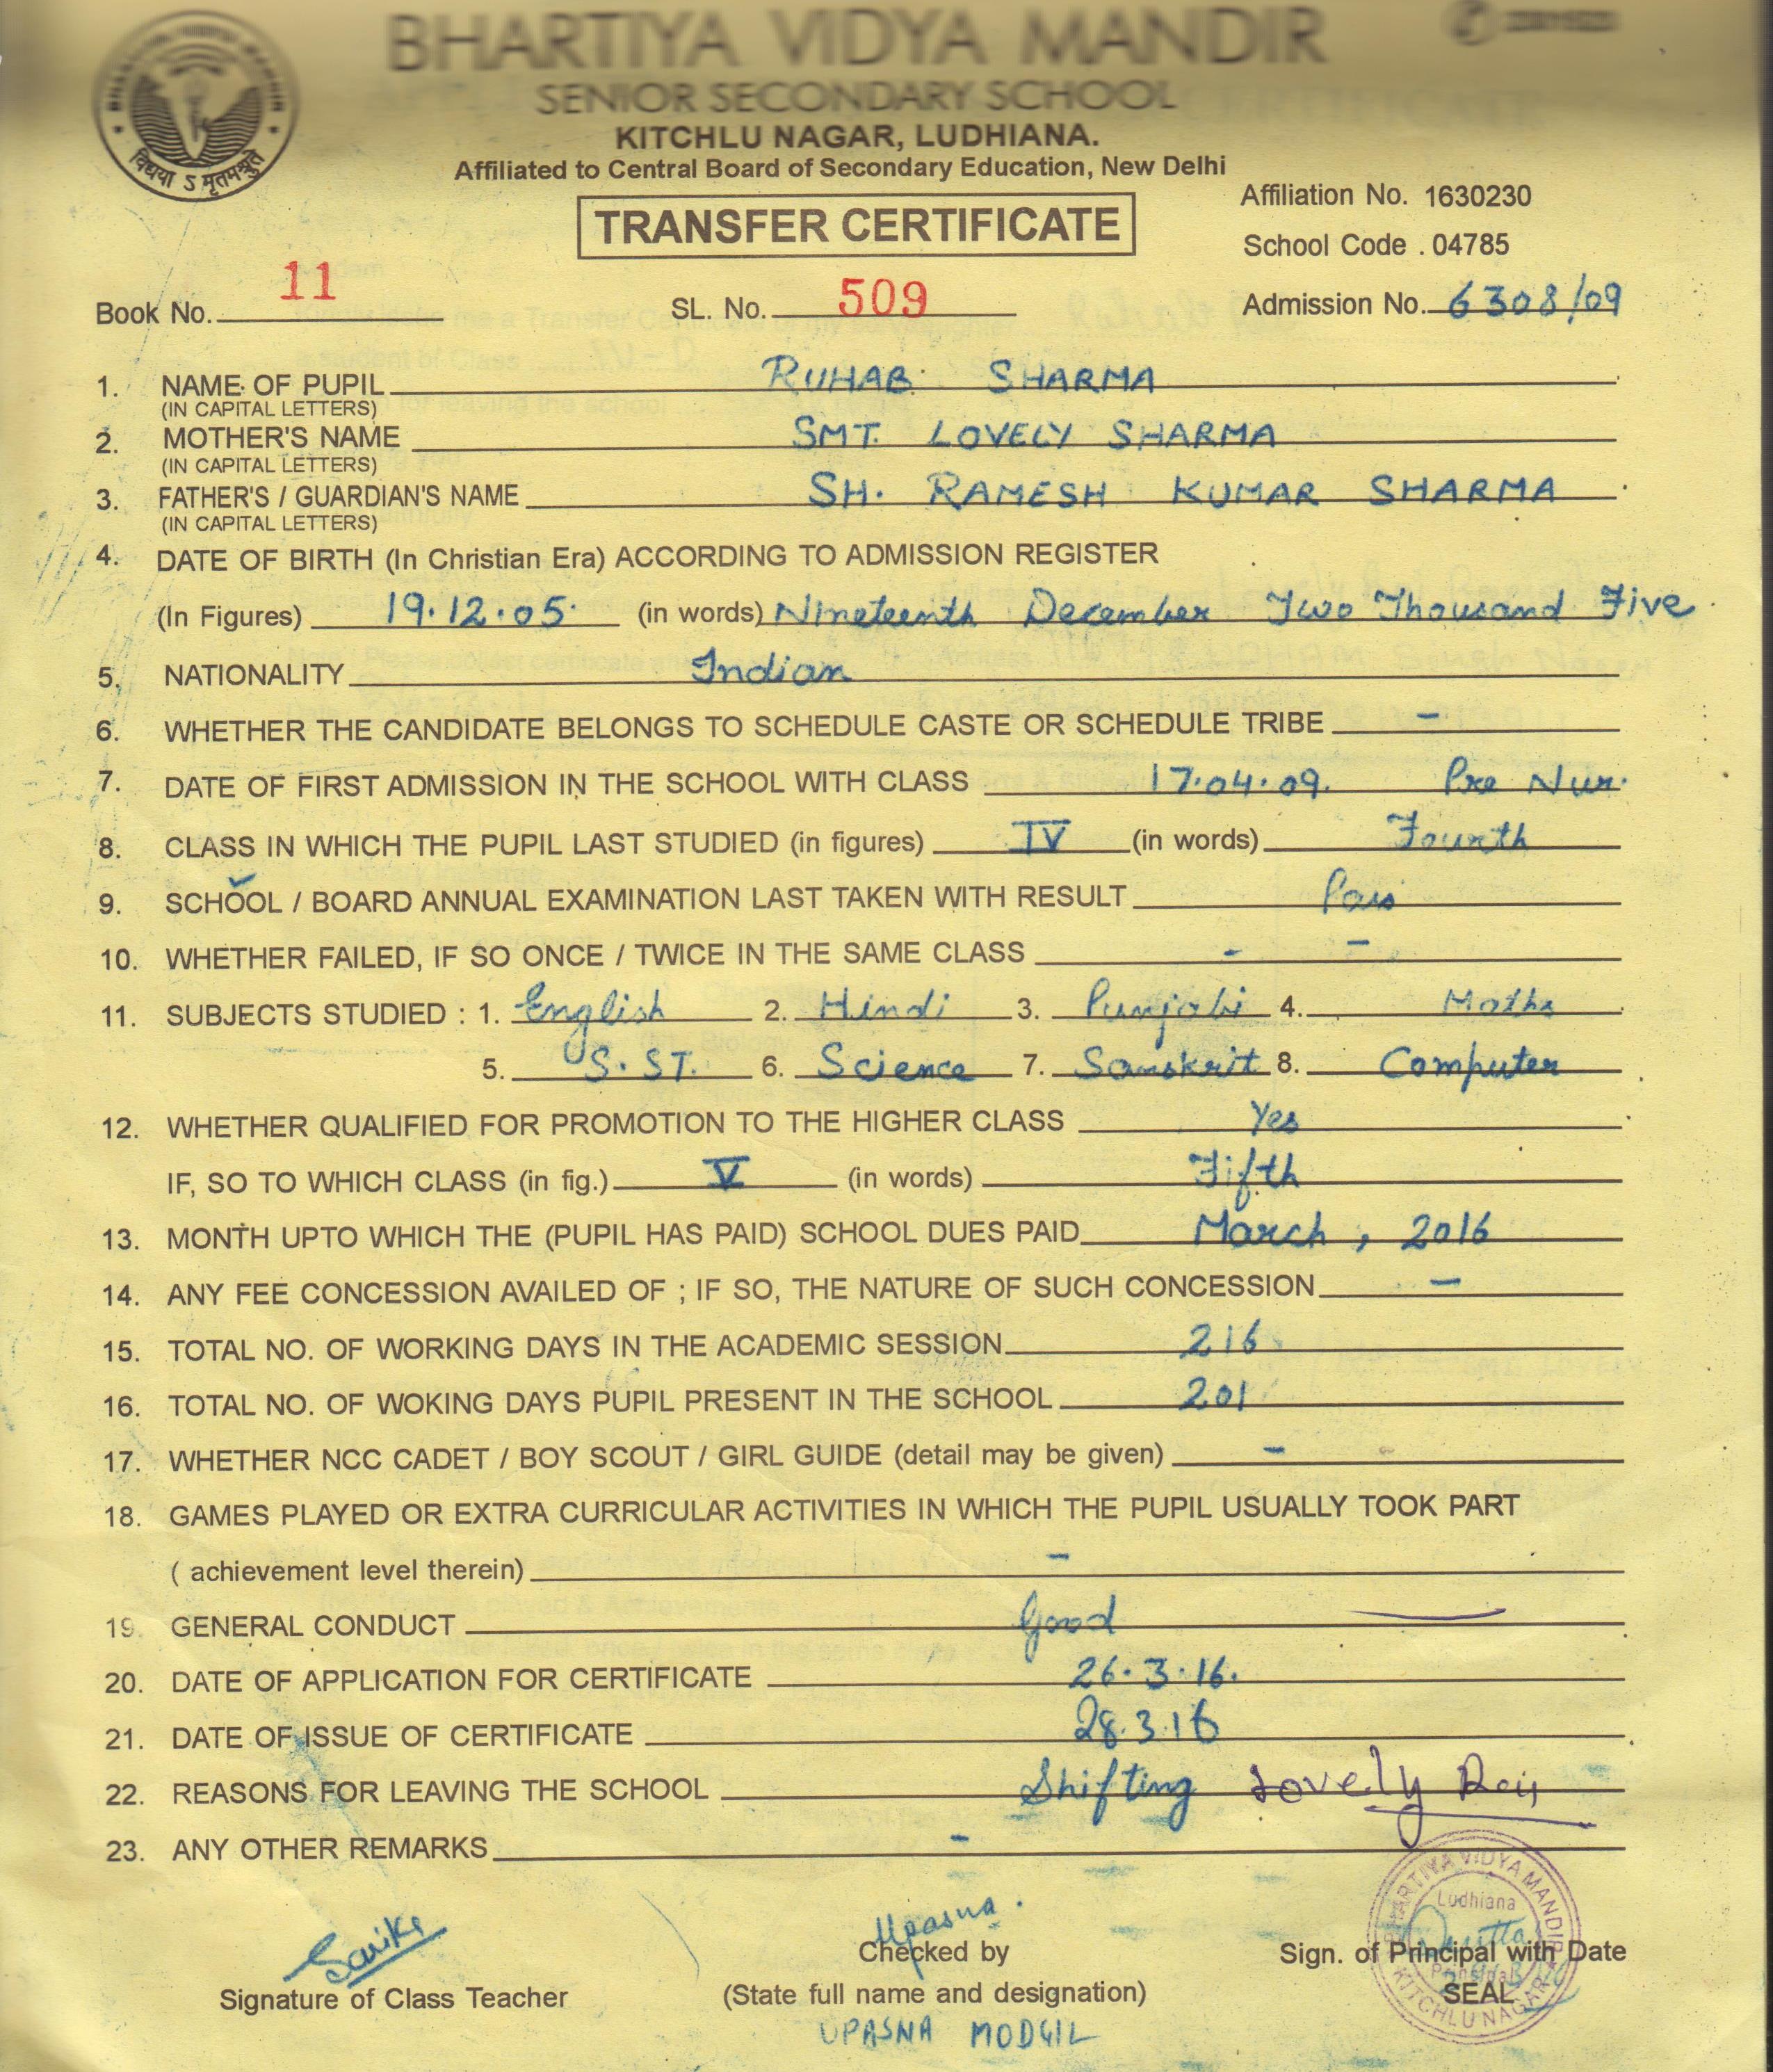 BHARTIYA VIDYA MANDIR
SENIOR SECONDARY SCHOOL
KITCHLU NAGAR, LUDHIANA.
Affiliated to Central Board of Secondary Education, New Delhi
विद्यया ऽ मृतमश्नुते
TRANSFER CERTIFICATE
Affiliation No. 1630230
School Code . 04785
Book No. 11 SL. No. 509 Admission No. 6308/09
1. NAME OF PUPIL RUHAB SHARMA
(IN CAPITAL LETTERS)
2. MOTHER'S NAME SMT. LOVELY SHARMA
(IN CAPITAL LETTERS)
3. FATHER'S / GUARDIAN'S NAME SH. RAMESH KUMAR SHARMA
(IN CAPITAL LETTERS)
4. DATE OF BIRTH (In Christian Era) ACCORDING TO ADMISSION REGISTER
(In Figures) 19.12.05. (in words) Nineteenth December Two Thousand Five
5. NATIONALITY Indian
6. WHETHER THE CANDIDATE BELONGS TO SCHEDULE CASTE OR SCHEDULE TRIBE -
7. DATE OF FIRST ADMISSION IN THE SCHOOL WITH CLASS 17.04.09. Pre Nur.
8. CLASS IN WHICH THE PUPIL LAST STUDIED (in figures) IV (in words) Fourth
9. SCHOOL / BOARD ANNUAL EXAMINATION LAST TAKEN WITH RESULT Pass
10. WHETHER FAILED, IF SO ONCE / TWICE IN THE SAME CLASS - -
11. SUBJECTS STUDIED : 1. English 2. Hindi 3. Punjabi 4. Maths
5. S.ST. 6. Science 7. Sanskrit 8. Computer
12. WHETHER QUALIFIED FOR PROMOTION TO THE HIGHER CLASS Yes
IF, SO TO WHICH CLASS (in fig.) V (in words) Fifth
13. MONTH UPTO WHICH THE (PUPIL HAS PAID) SCHOOL DUES PAID March, 2016
14. ANY FEE CONCESSION AVAILED OF ; IF SO, THE NATURE OF SUCH CONCESSION -
15. TOTAL NO. OF WORKING DAYS IN THE ACADEMIC SESSION 216
16. TOTAL NO. OF WOKING DAYS PUPIL PRESENT IN THE SCHOOL 201
17. WHETHER NCC CADET / BOY SCOUT / GIRL GUIDE (detail may be given) -
18. GAMES PLAYED OR EXTRA CURRICULAR ACTIVITIES IN WHICH THE PUPIL USUALLY TOOK PART
( achievement level therein) -
19. GENERAL CONDUCT Good
20. DATE OF APPLICATION FOR CERTIFICATE 26.3.16.
21. DATE OF ISSUE OF CERTIFICATE 28.3.16
22. REASONS FOR LEAVING THE SCHOOL Shifting Lovely
23. ANY OTHER REMARKS -
BHARTIYA VIDYA MANDIR
Ludhiana
Principal
KITCHLU NAGAR
Upasna.
Signature of Class Teacher Checked by Sign. of Principal with Date
(State full name and designation) SEAL
UPASNA MODGIL